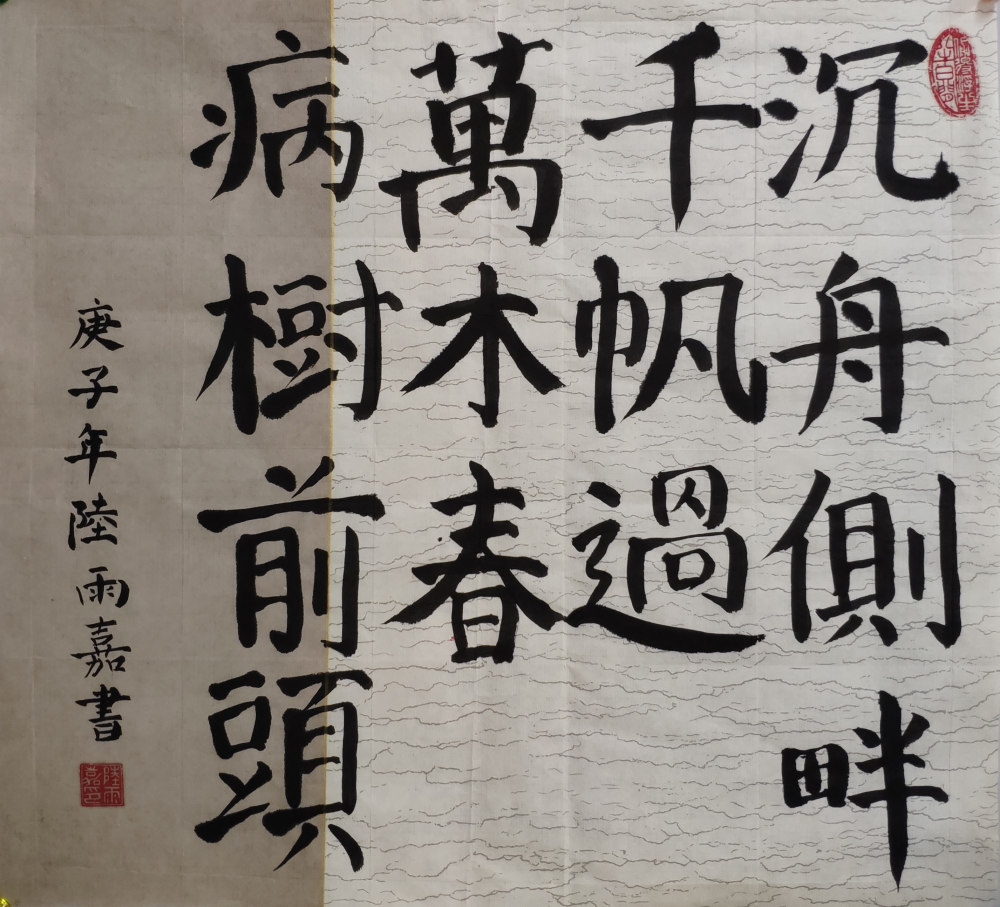 沉舟側畔
千帆過
萬木春
病樹前頭
庚子年陸雨嘉書
陸雨嘉印